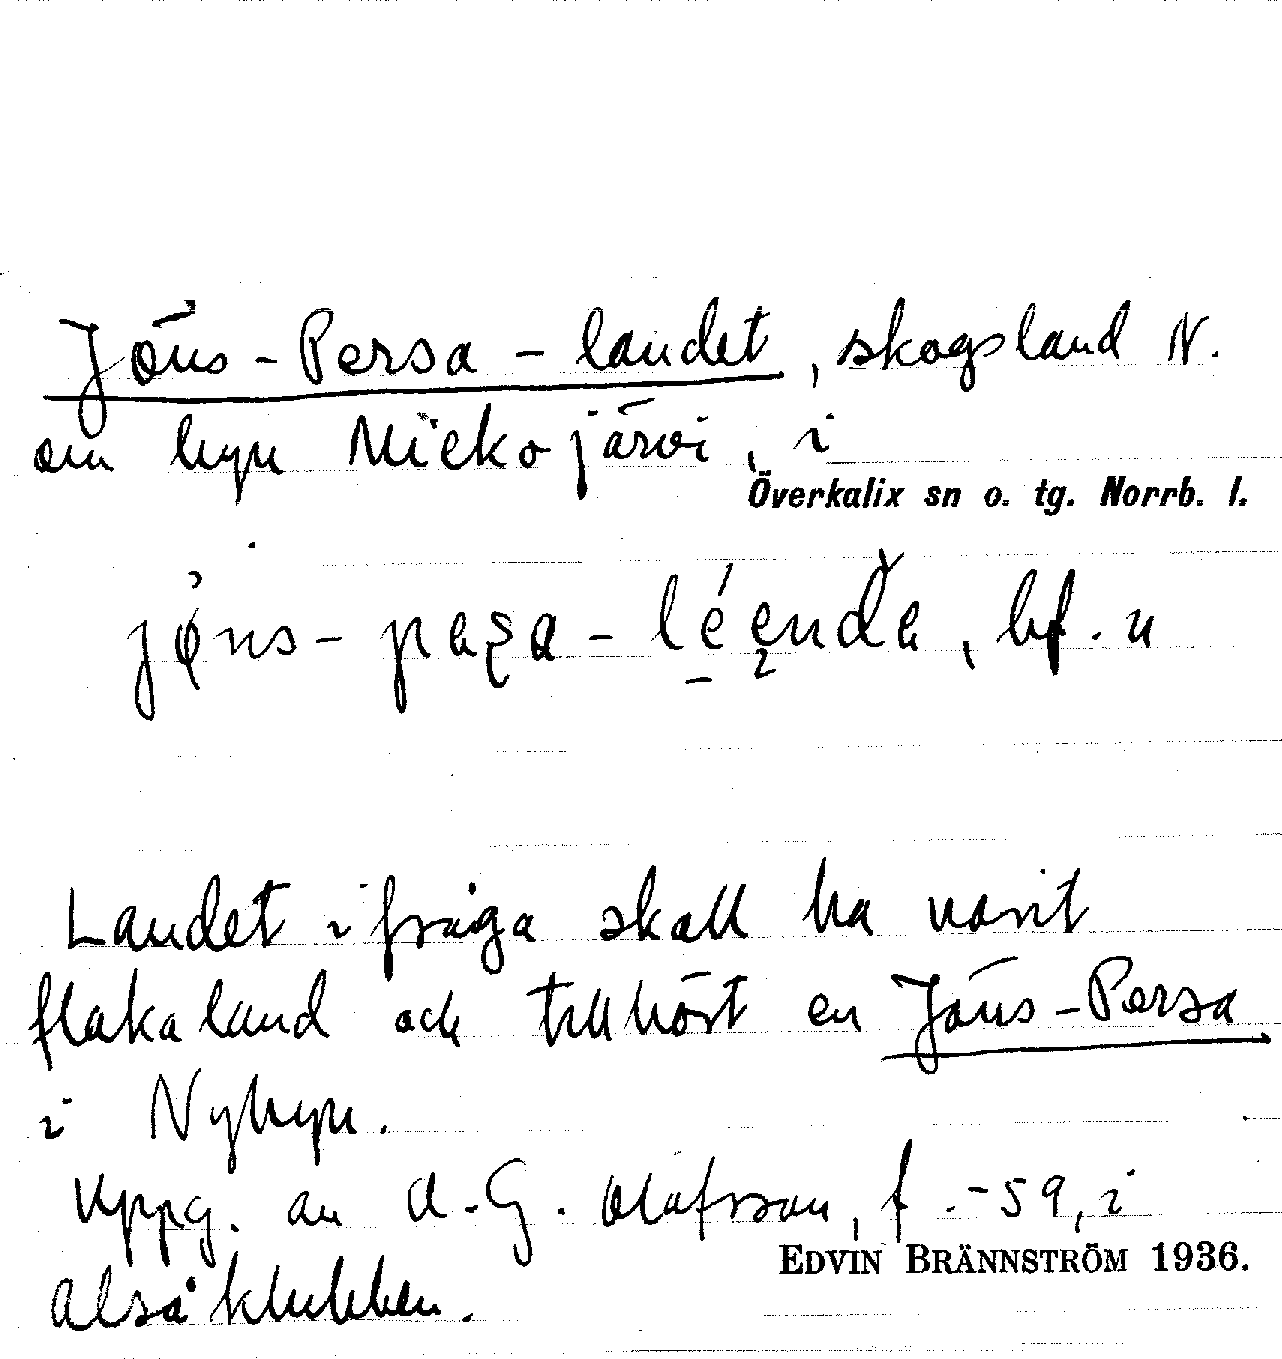 Jöns-Persa-landet, skogsland N.
om byn Miekojärvi, i
Överkalix sn o. tg. Norrb. l.
bf. n
Landet ifråga skall ha varit
flakaland och tillhört en Jöns-Persa
i Nybyn.
Uppg. av A.-G. Olofsson, f.-59, i
EDVIN BRÄNNSTRÖM 1936.
Alsåklubben.